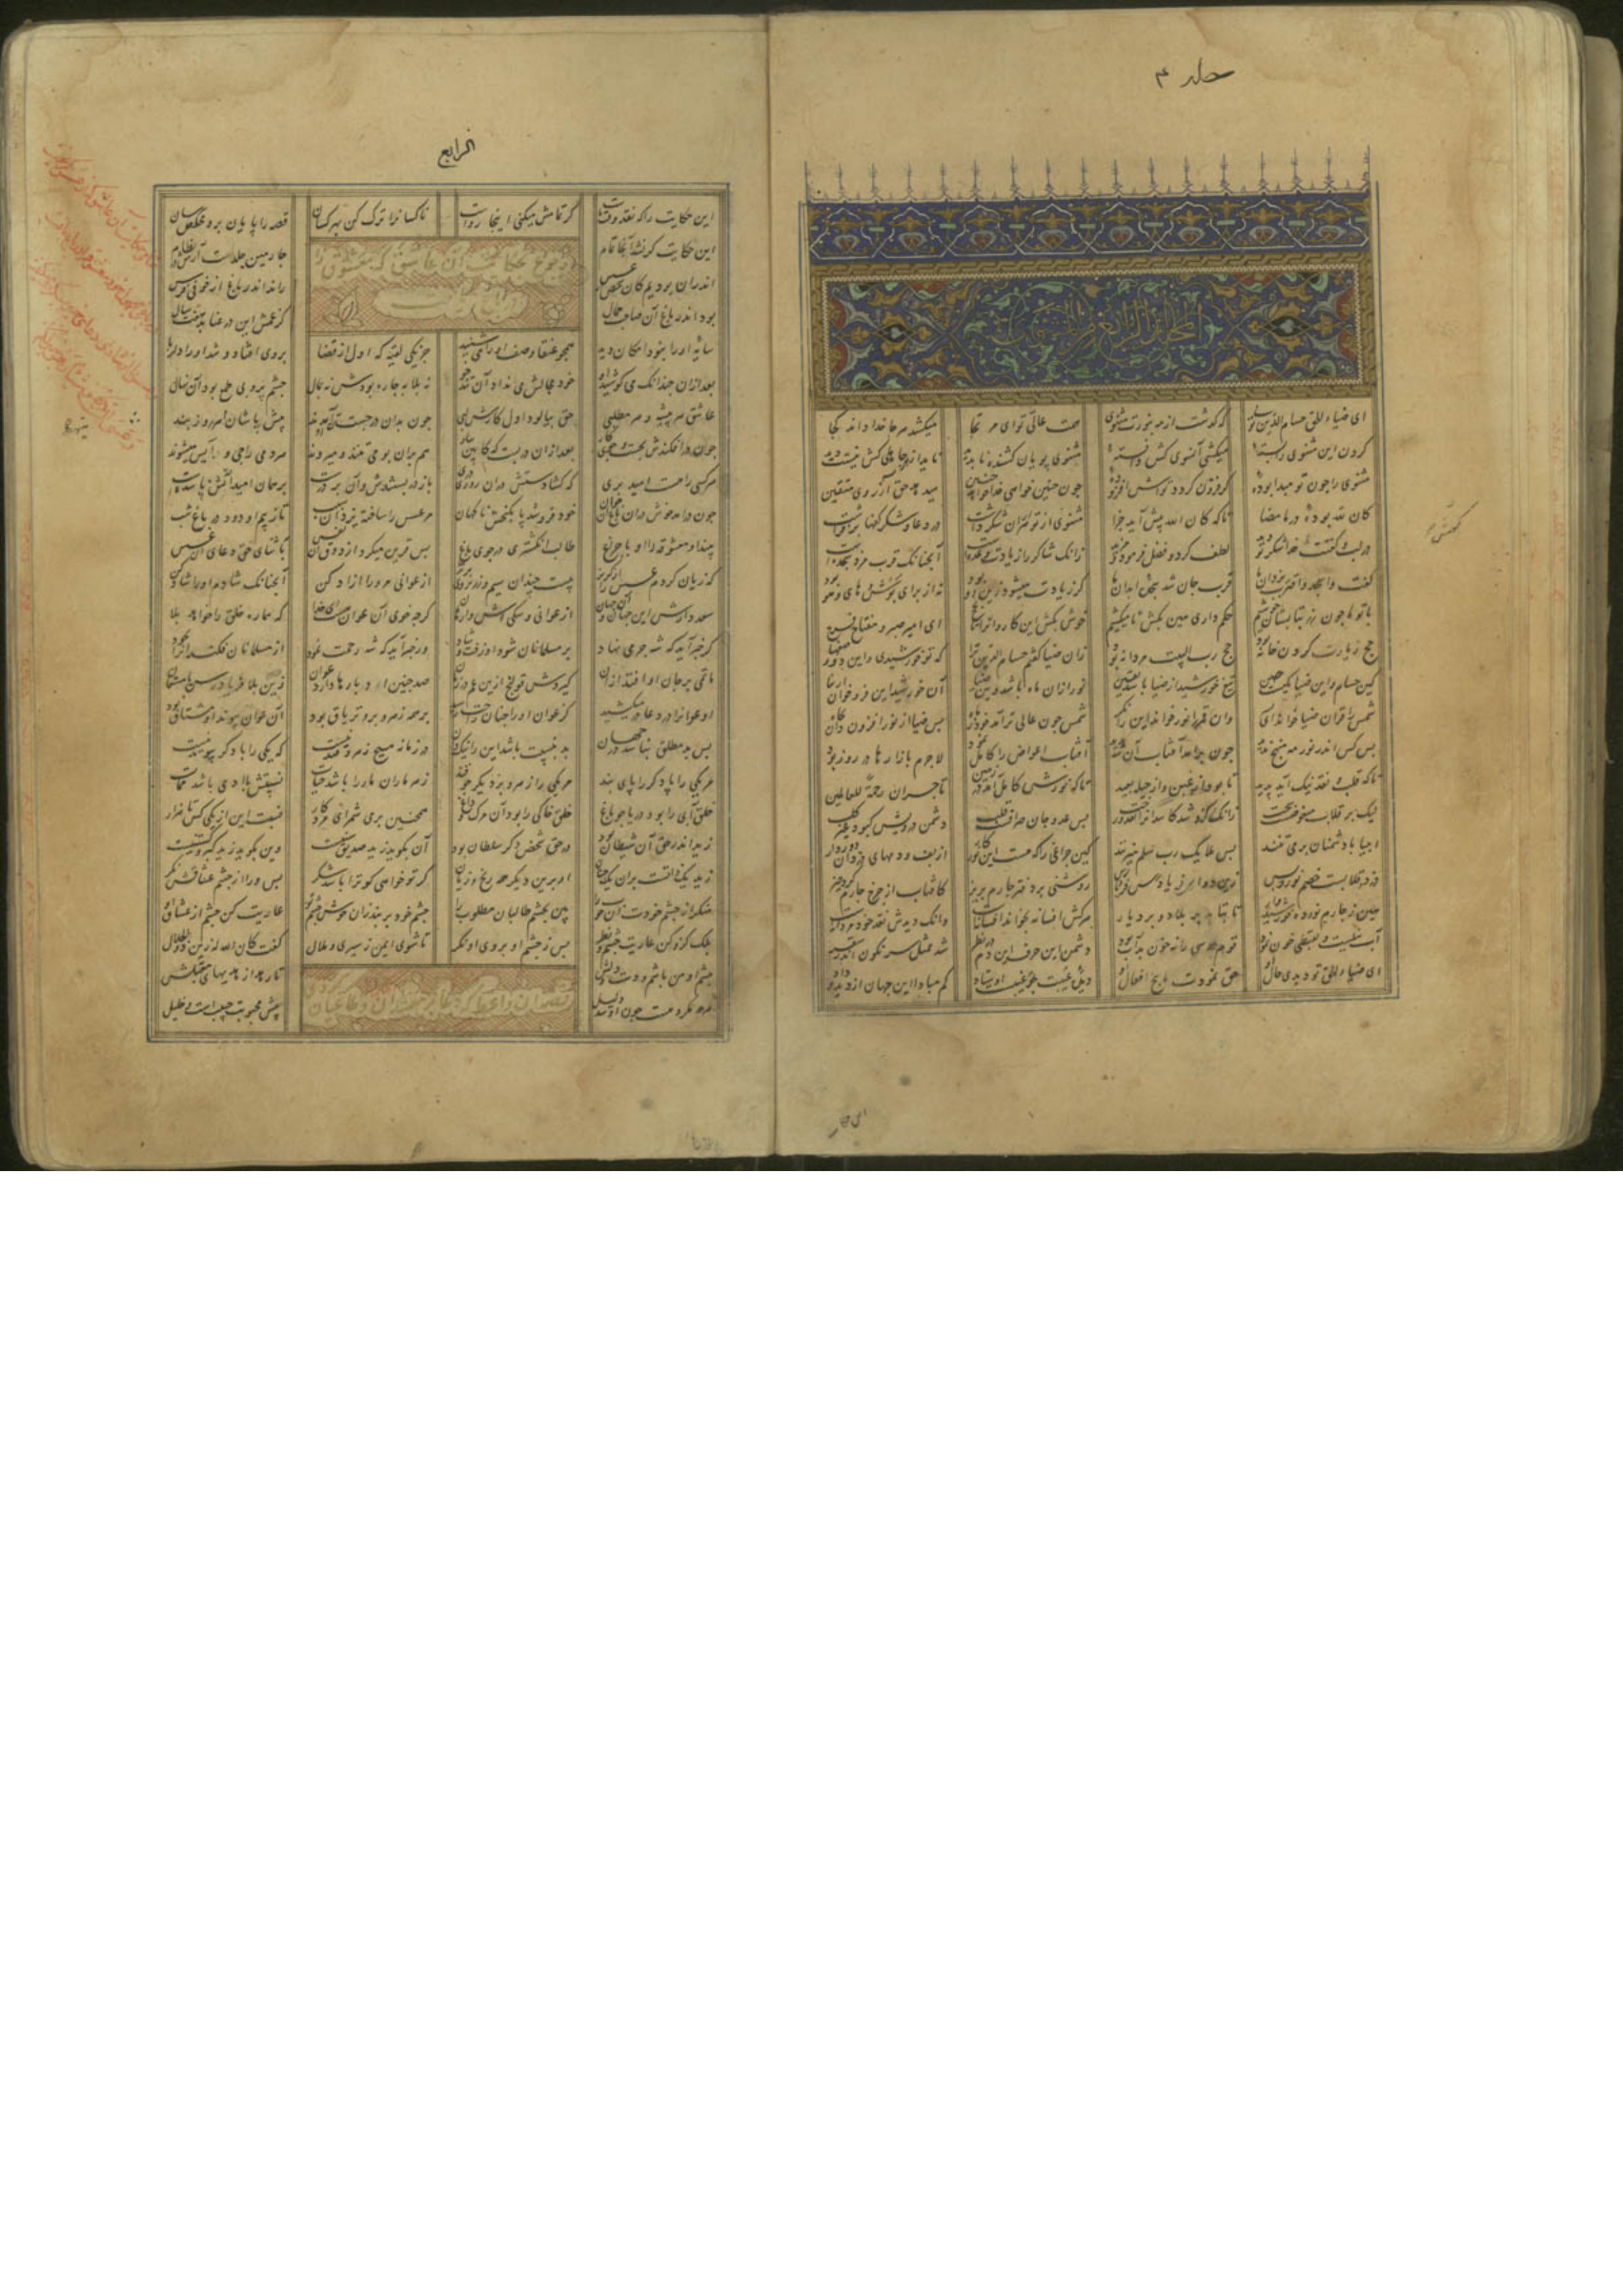 جلد ۴
ای ضیاء الحق حسام الدین توی که گذشت از مه بنورت مثنوی همت عالی تو ای مرتجا میکشد هر جا خدا داند کجا
کردن این مثنوی را بسته میکشی آنسوی کش دانسته مثنوی پویان کشنده ناپدید ناپدید از جاهلی کش نیست دید
مثنوی را چون تو مبدا بوده گر فزون گردد تواش افزوده چون چنین خواهی خدا خواهد چنین میدهد حق آرزوی متقین
کان لله بوده در ما مضا تا که کان الله پیش آید جزا مثنوی از تو هزاران شکر داشت در دعا و شکر کفها بر فراشت
در لب و کفش خدا شکر تو دید لطف کرد و فضل فرمود و مزید زانک شاکر را زیادت وعده است آنچنانک قرب مزد سجده است
گفت واسجد واقترب یزدان ما قرب جان شد سجده ابدان ما گر زیادت میشود زین رو بود نه از برای بوش و های و هو بود
با تو ما چون رز بتابستان خوشیم حکم داری هین بکش تا میکشیم خوش بکش این کاروانرا تا بحج ای امیر صبر و مفتاح فرج
حج زیارت کردن خانه بود حج رب البیت مردانه بود زان ضیا گفتم حسام الدین ترا که تو خورشیدی و این دو وصفها
کین حسام و این ضیا یکیست هین تیغ خورشید از ضیا باشد یقین نور از آن ماه باشد وین ضیا آن خورشید این فرو خوان از نبا
شمس را قرآن ضیا خواند ای پدر وان قمر را نور خواند این را نگر شمس چون عالی تر آمد خود ز ماه پس ضیا از نور افزون دان بجاه
بس کس اندر نور مه منهج ندید چون برآمد آفتاب آن شد پدید آفتاب اعواض را کامل نمود لاجرم بازارها در روز بود
تا که قلب و نقد نیک آید پدید تا بود از غبن و از حیله بعید تا که نورش کامل آمد در زمین تاجران را رحمة للعالمین
لیک بر قلاب مبغوضست و سخت زانک ازو شد کاسد او را نقد و رخت پس عدو جان صرافست قلب دشمن درویش که بود غیر کلب
انبیا با دشمنان بر می تنند پس ملایک رب سلم میزنند کین چراغی را که هست این نور کار از پف و دمهای دزدان دور دار
دزد و قلابست خصم نور بس زین دو ای فریادرس فریاد رس روشنی بر دفتر چارم بریز کافتاب از چرخ چارم کرد خیز
هین ز چارم نور ده خورشیدوار تا بتابد بر بلاد و بر دیار هر کش افسانه بخواند افسانه است وانک دیدش نقد خود مردانه است
آب نیلست و بقبطی خون نمود قوم موسی را نه خون بد آب بود دشمن این حرف این دم در نظر شد ممثل سرنگون اندر سقر
ای ضیاء الحق تو دیدی حال او حق نمودت پاسخ افعال او دیده غیبت چو غیبست اوستاد کم مبادا این جهان از دیده و داد
الرابع
این حکایت را که نقد وقت ماست گر تمامش میکنی اینجا رواست ناکسانرا ترک کن بهر کسان قصه را پایان بر و مخلص رسان
این حکایت گر نشد آنجا تمام چارمین جلدست آرش در نظام
اندران بودیم کان شخص از عسس راند اندر باغ از خوفی فرس
بود اندر باغ آن صاحب جمال کز غمش این در عنا بد هشت سال
سایه او را نبود امکان دید همچو عنقا وصف او را می شنید جز یکی لقیه که اول از قضا بر وی افتاد و شد او را دلربا
بعد ازان چندانک می کوشید او خود مجالش می نداد آن تندخو نه بلابه چاره بودش نه بمال چشم پر و بی طمع بود آن نهال
عاشق هر پیشه و هر مطلبی حق بیالود اول کارش لبی چون بدان در جست آمدند پیش پاشان هر روز بند
چون در افکندش بجست و جوی کار بعد ازان در بست که کابین بیار هم بران بو می تنند و میروند هر دمی راجی و آیس میشوند
هر کسی را هست امید بری که گشادندش دران روزی دری باز در بستندش و آن در پرست بر همان امید آتش پا شدست
چون درآمد خوش دران باغ آن جوان خود فرو شد پا بگنجش ناگهان مر عسس را ساخته یزدان سبب تا ز بیم او دود در باغ شب
بیند آن معشوقه را او با چراغ طالب انگشتری در جوی باغ پس قرین میکرد از ذوق آن نفس با ثنای حق دعای آن عسس
که زیان کردم عسس را از گریز بیست چندان سیم و زر بر وی بریز از عوانی مر ورا آزاد کن آنچنانک شادم او را شاد کن
سعد دارش این جهان و آن جهان از عوانی و سگی اش وارهان گرچه خوی آن عوان هست ای خدا که هماره خلق را خواهد بلا
گر خبر آید که شه جرمی نهاد بر مسلمانان شود او زفت و شاد ور خبر آید که شه رحمت نمود از مسلمانان فکند آنرا بجود
ماتمی در جان او افتد ازان گیردش قولنج ازین غم در زمان صد چنین ادبارها دارد عوان زین بلا فریاد رس ای مستعان
او عوانرا در دعا در میکشید کز عوان او را چنان راحت رسید بر همه زهر و برو تریاق بود آن عوان پیوند او مشتاق بود
پس بد مطلق نباشد در جهان بد بنسبت باشد این را نیک دان در زمانه هیچ زهر و قند نیست که یکی را پا دگر پابند نیست
مر یکی را پا دگر را پای بند مر یکی را زهر و بر دیگر چو قند زهر ماران مار را باشد حیات نسبتش با آدمی باشد ممات
خلق آبی را بود دریا چو باغ خلق خاکی را بود آن مرگ و داغ همچنین بر می شمر ای مرد کار نسبت این از یکی کس تا هزار
زید اندر حق آن شیطان بود در حق شخصی دگر سلطان بود آن بگوید زید صدیق سنیست وین بگوید زید گبر و کشتنیست
زید یک ذاتست بران یک جنان او برین دیگر همه رنج و زیان گر تو خواهی کو ترا باشد شکر پس ورا از چشم عشاقش نگر
منگر از چشم خودت آن خوب را بین بچشم طالبان مطلوب را چشم خود بر بند زان خوش چشم تو عاریت کن چشم از عشاق او
بلک ازو کن عاریت چشم و نظر پس ز چشم او بروی او نگر تا شوی ایمن ز سیری و ملال گفت کان الله له زین ذوالجلال
چشم او من باشم و دست و دلش تا رهد از مدبریها مقبلش
هر چه مکروهست چون او شد دلیل پیش محبوبت حبیبست و خلیل